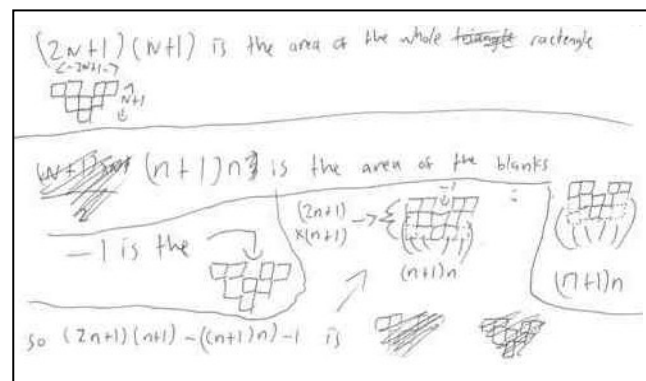 (2N+1)(N+1) is the area of the whole ractengle
<-2N+1->
N+1
(n+1)n is the area of the blanks
-1 is the
-1
(2n+1)
x(n+1)
(n+1)n
:
(n+1)n
so (2n+1)(n+1)-((n+1)n)-1 is